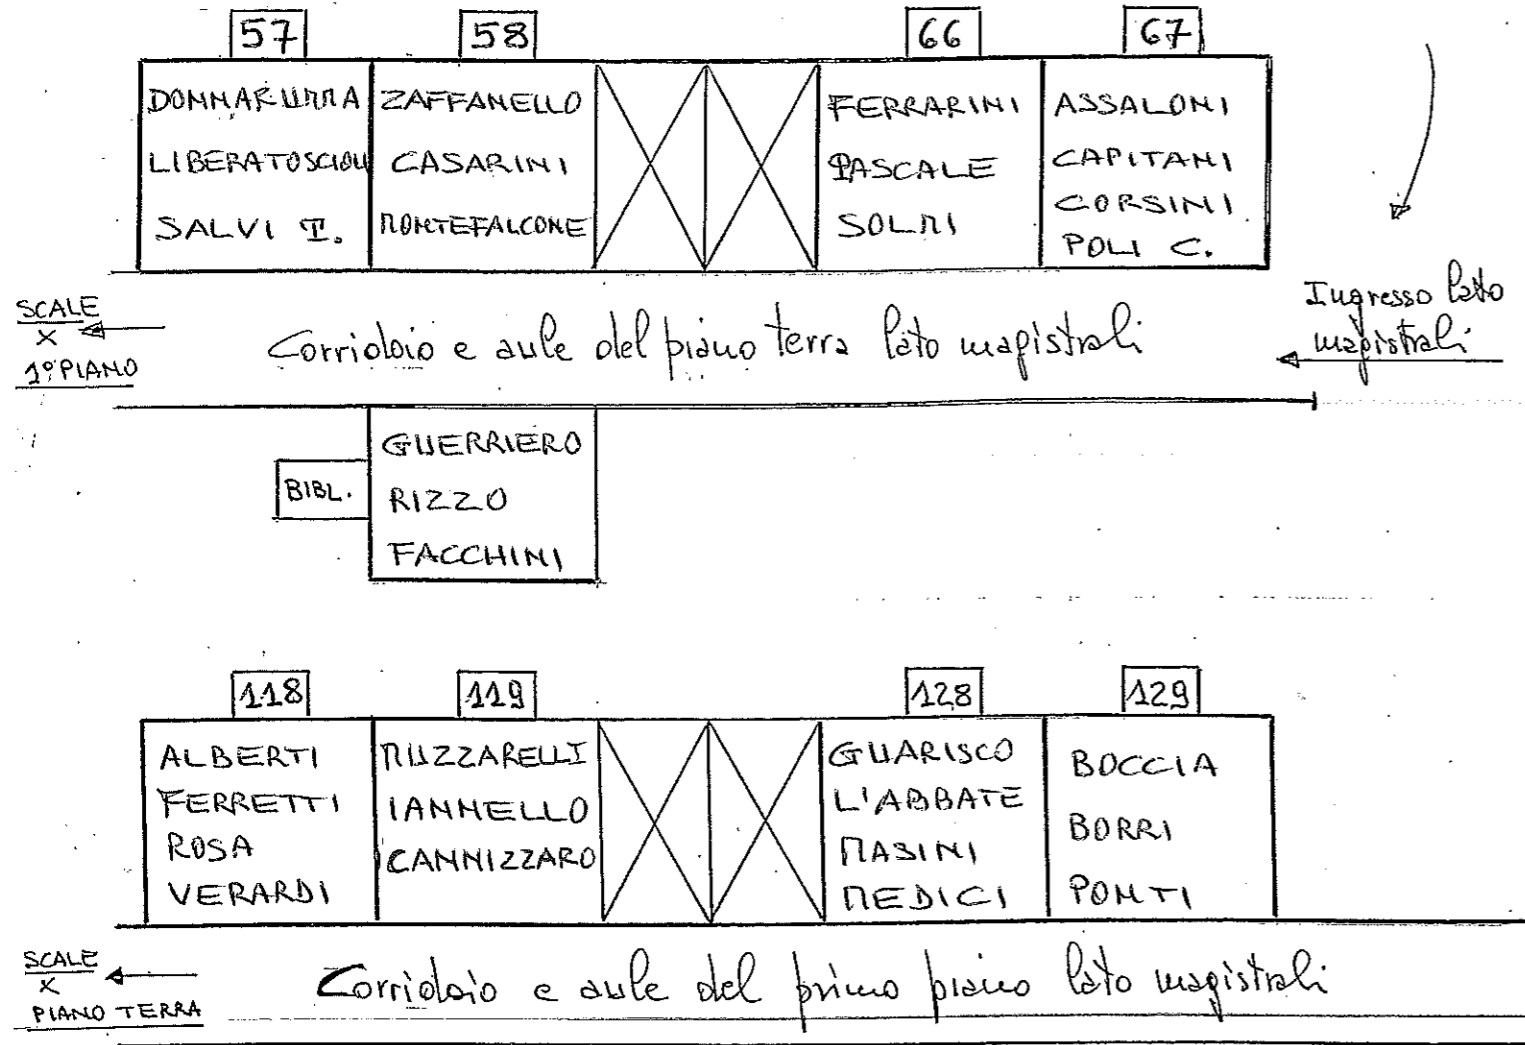 57
58
66
67
DONNARUMMA
LIBERATOSCIOLI
SALVI T.
ZAFFANELLO
CASARINI
MONTEFALCONE
FERRARINI
PASCALE
SOLMI
ASSALONI
CAPITANI
CORSINI
POLI C.
SCALE
X
1° PIANO
Corridoio e aule del piano terra lato magistrali
Ingresso lato
magistrali
BIBL.
GUERRIERO
RIZZO
FACCHINI
118
119
128
129
ALBERTI
FERRETTI
ROSA
VERARDI
MUZZARELLI
IANNELLO
CANNIZZARO
GUARISCO
L'ABBATE
MASINI
MEDICI
BOCCIA
BORRI
PONTI
SCALE
X
PIANO TERRA
Corridoio e aule del primo piano lato magistrali